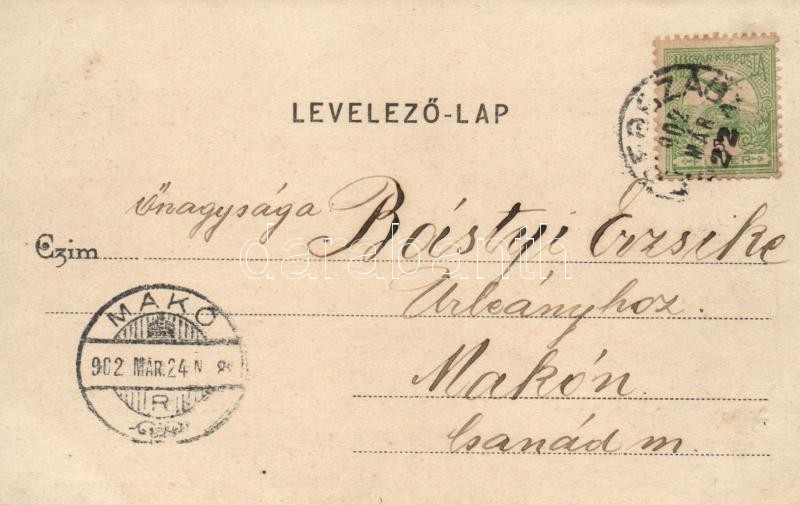 MAGYAR KIR. POSTA
902
MÁR
22
LEVELEZŐ-LAP
őnagysága Bástyi Erzsike
Czim
Urleányhoz.
Makón.
Csanád m.
MAKÓ
902 MÁR.24 N 8
R
darabanth